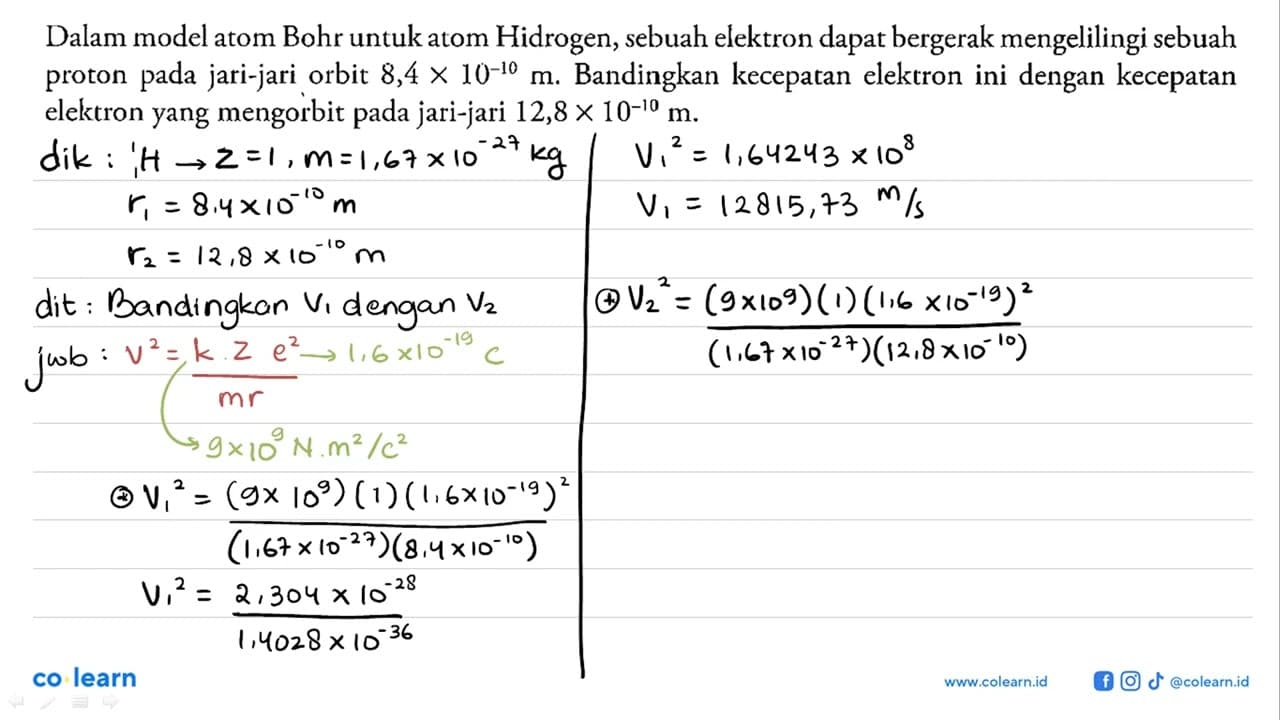 Dalam model atom Bohr untuk atom Hidrogen, sebuah elektron dapat bergerak mengelilingi sebuah
proton pada jari-jari orbit 8,4 × 10⁻¹⁰ m. Bandingkan kecepatan elektron ini dengan kecepatan
elektron yang mengorbit pada jari-jari 12,8 × 10⁻¹⁰ m.
dik : ¹₁H → Z = 1, m = 1,67 × 10⁻²⁷ kg
r₁ = 8,4 × 10⁻¹⁰ m
r₂ = 12,8 × 10⁻¹⁰ m
dit : Bandingkan V₁ dengan V₂
jwb : v² = k . Z e² → 1,6 × 10⁻¹⁹ C
mr
9 × 10⁹ N.m²/c²
② V₁² = (9 × 10⁹) (1) (1,6 × 10⁻¹⁹)²
(1,67 × 10⁻²⁷)(8,4 × 10⁻¹⁰)
V₁² = 2,304 × 10⁻²⁸
1,4028 × 10⁻³⁶
V₁² = 1,64243 × 10⁸
V₁ = 12815,73 m/s
⊕ V₂² = (9×10⁹) (1) (1,6 × 10⁻¹⁹)²
(1,67 × 10⁻²⁷)(12,8 × 10⁻¹⁰)
co learn
www.colearn.id
@colearn.id